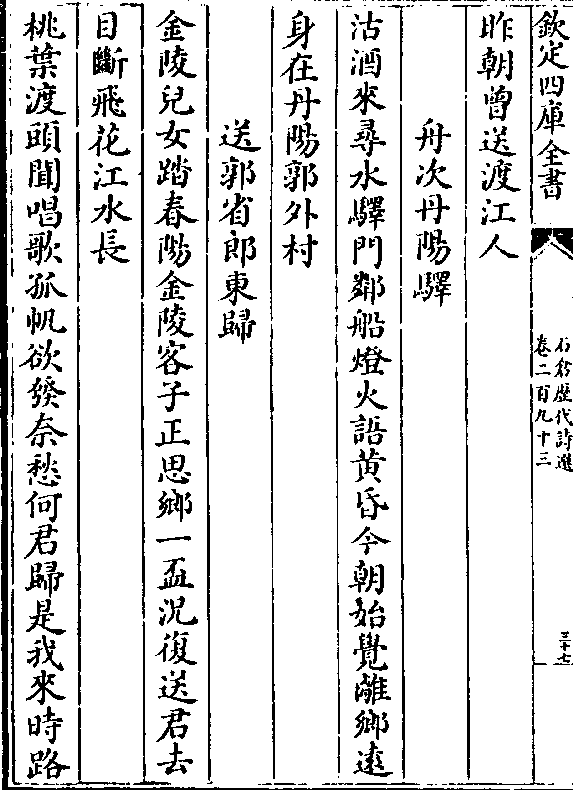 欽定四庫全書
石倉歷代詩選
卷二百九十三
三十七
昨朝曾送渡江人
舟次丹陽驛
沽酒來尋水驛門鄰船燈火語黄昏今朝始覺離鄉逺
身在丹陽郭外村
送郭省郎東歸
金陵兒女踏春陽金陵客子正思鄉一盃況復送君去
目斷飛花江水長
桃葉渡頭聞唱歌孤帆欲發奈愁何君歸是我來時路